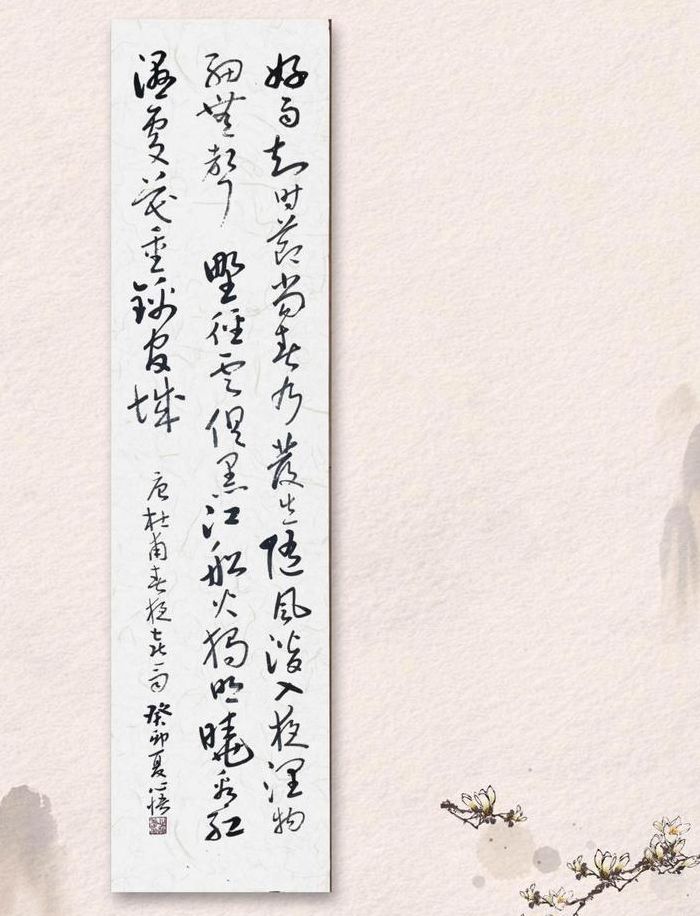 好雨知時節當春乃發生隨風潛入夜潤物
細無聲野徑雲俱黑江船火獨明曉看紅
濕處花重錦官城
唐杜甫春夜喜雨癸卯夏心悟